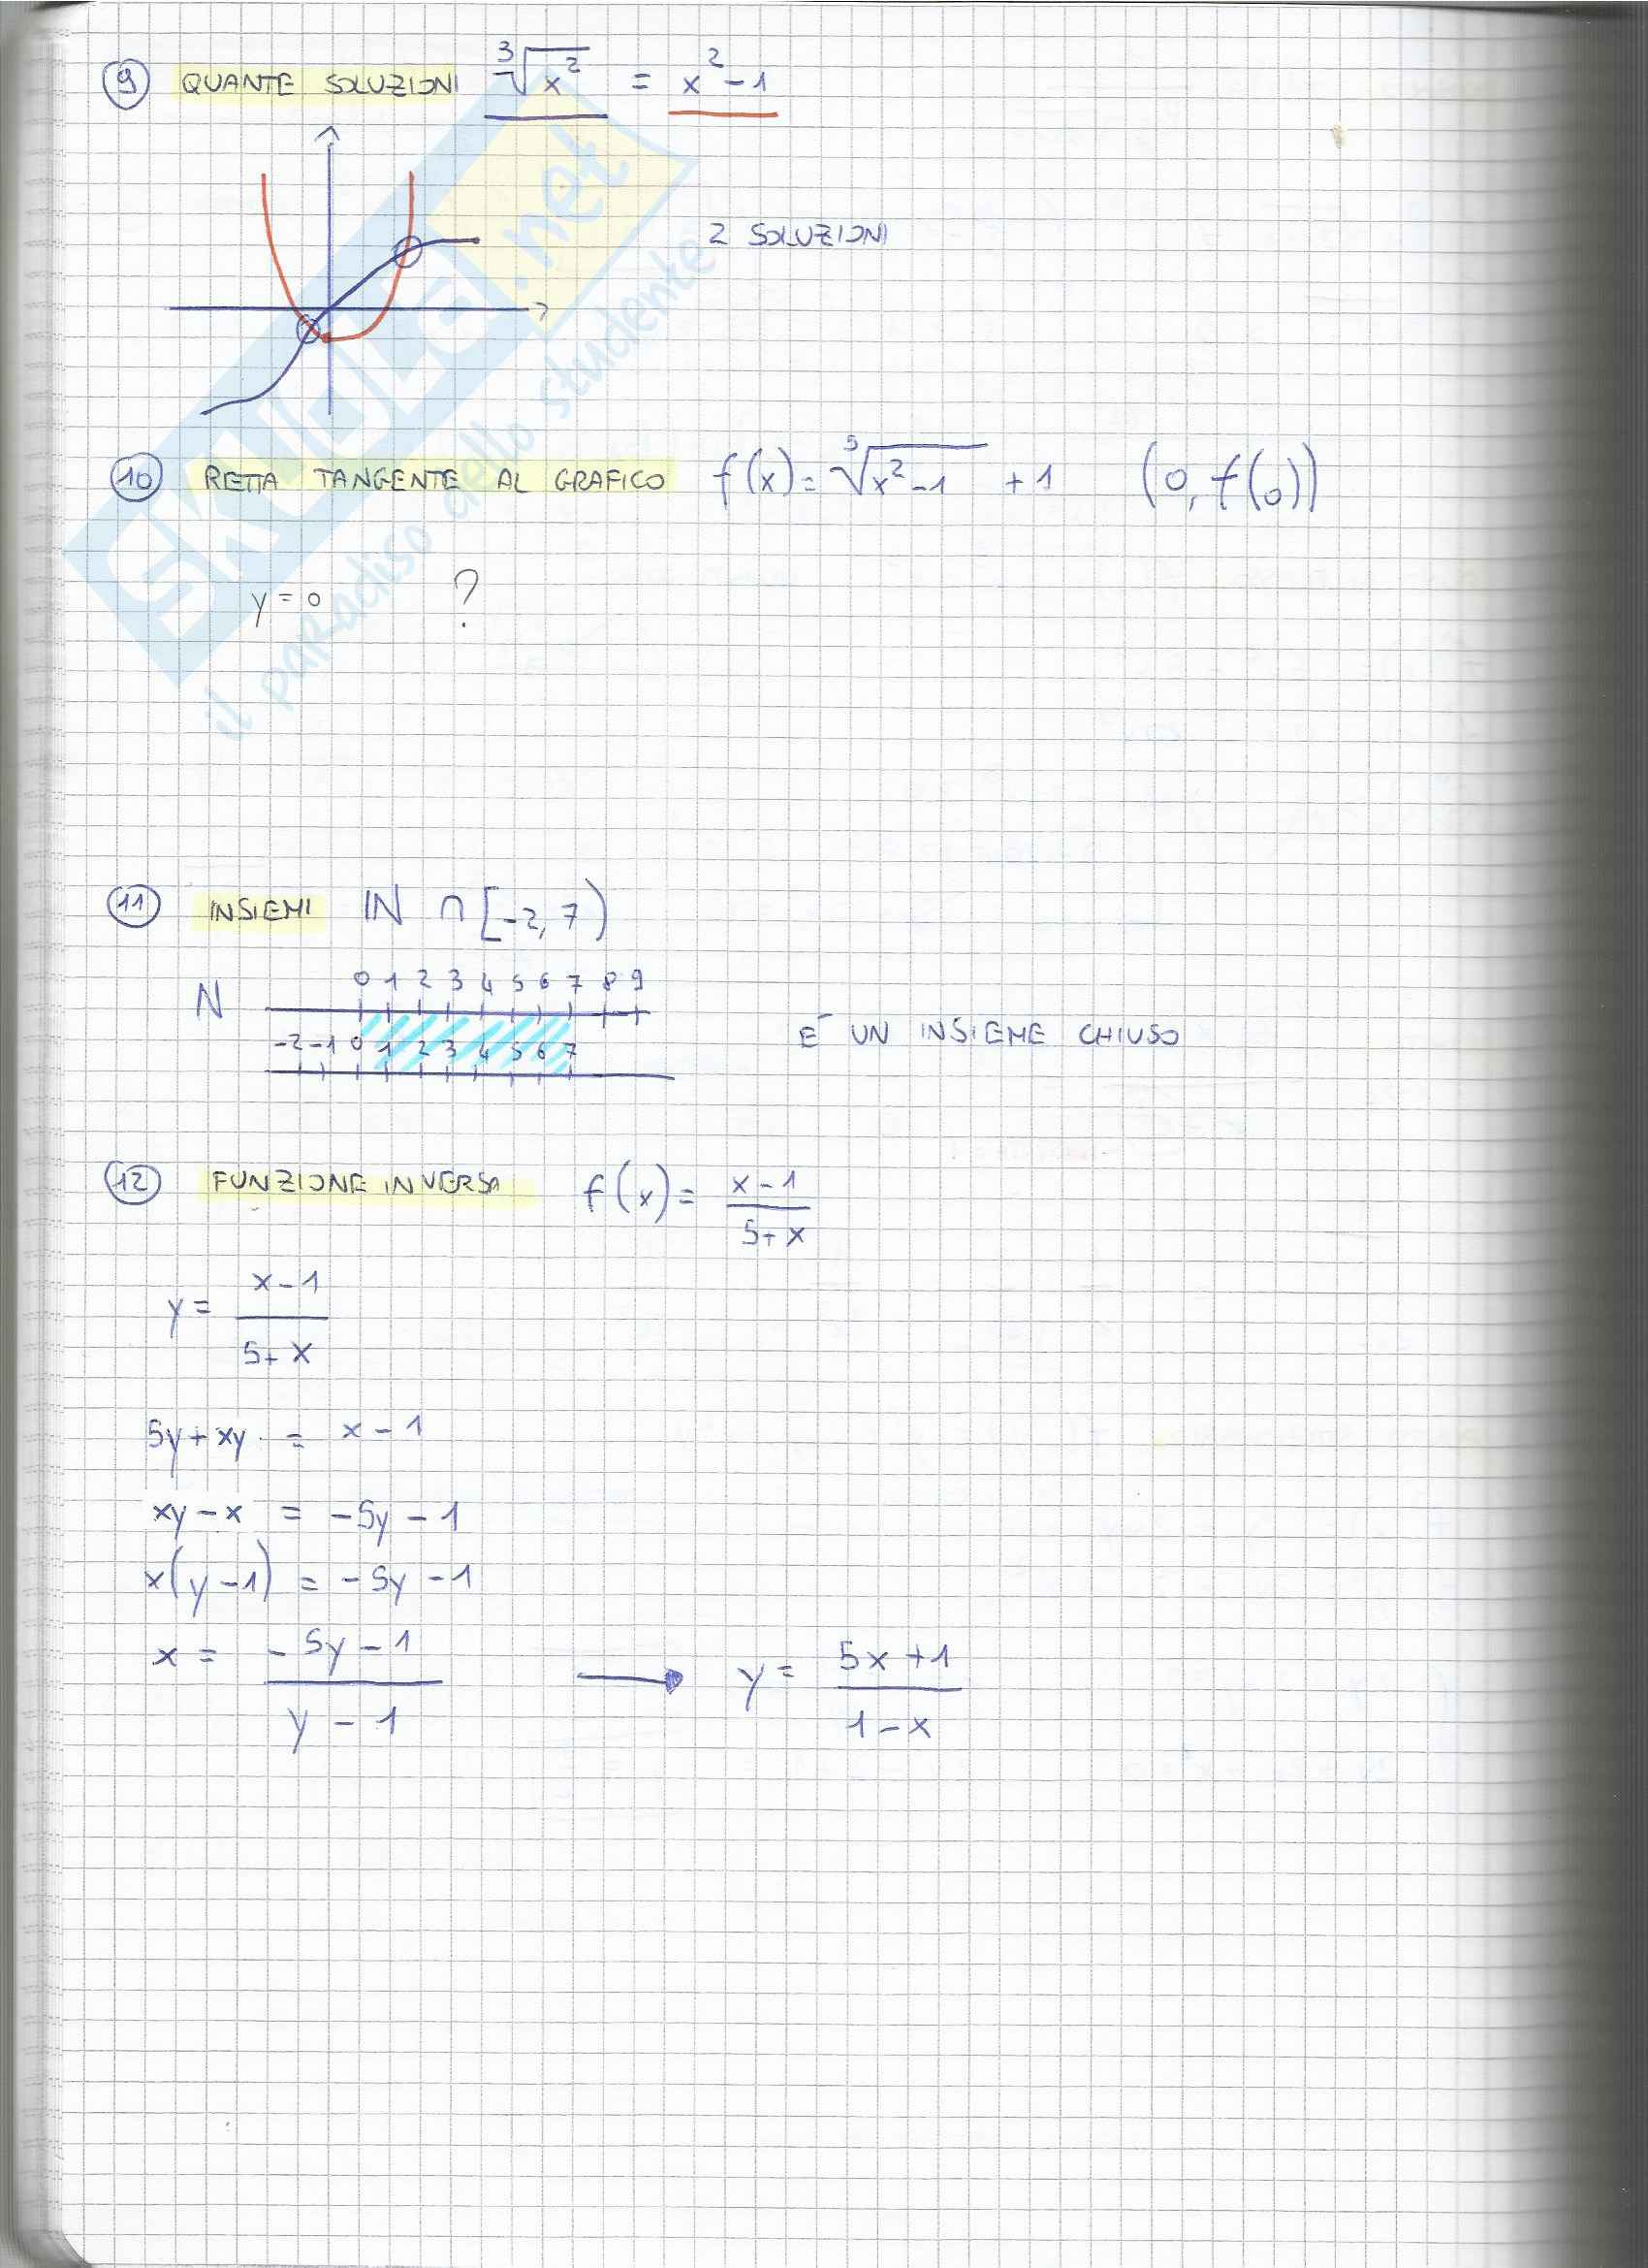 9 QUANTE SOLUZIONI ∛x² = x²-1
2 SOLUZIONI
10 RETTA TANGENTE AL GRAFICO f(x) = ⁵√(x²-1) + 1 (0, f(0))
y = 0 ?
11 INSIEMI IN ∩ [-2, 7)
0 1 2 3 4 5 6 7 8 9
N
-2 -1 0 1 2 3 4 5 6 7
E' UN INSIEME CHIUSO
12 FUNZIONE INVERSA f(x) = (x-1)/(5+x)
y = (x-1)/(5+x)
5y+xy = x-1
xy-x = -5y-1
x(y-1) = -5y-1
x = (-5y-1)/(y-1) → y = (5x+1)/(1-x)
SKUOLA.net
il paradiso dello studente